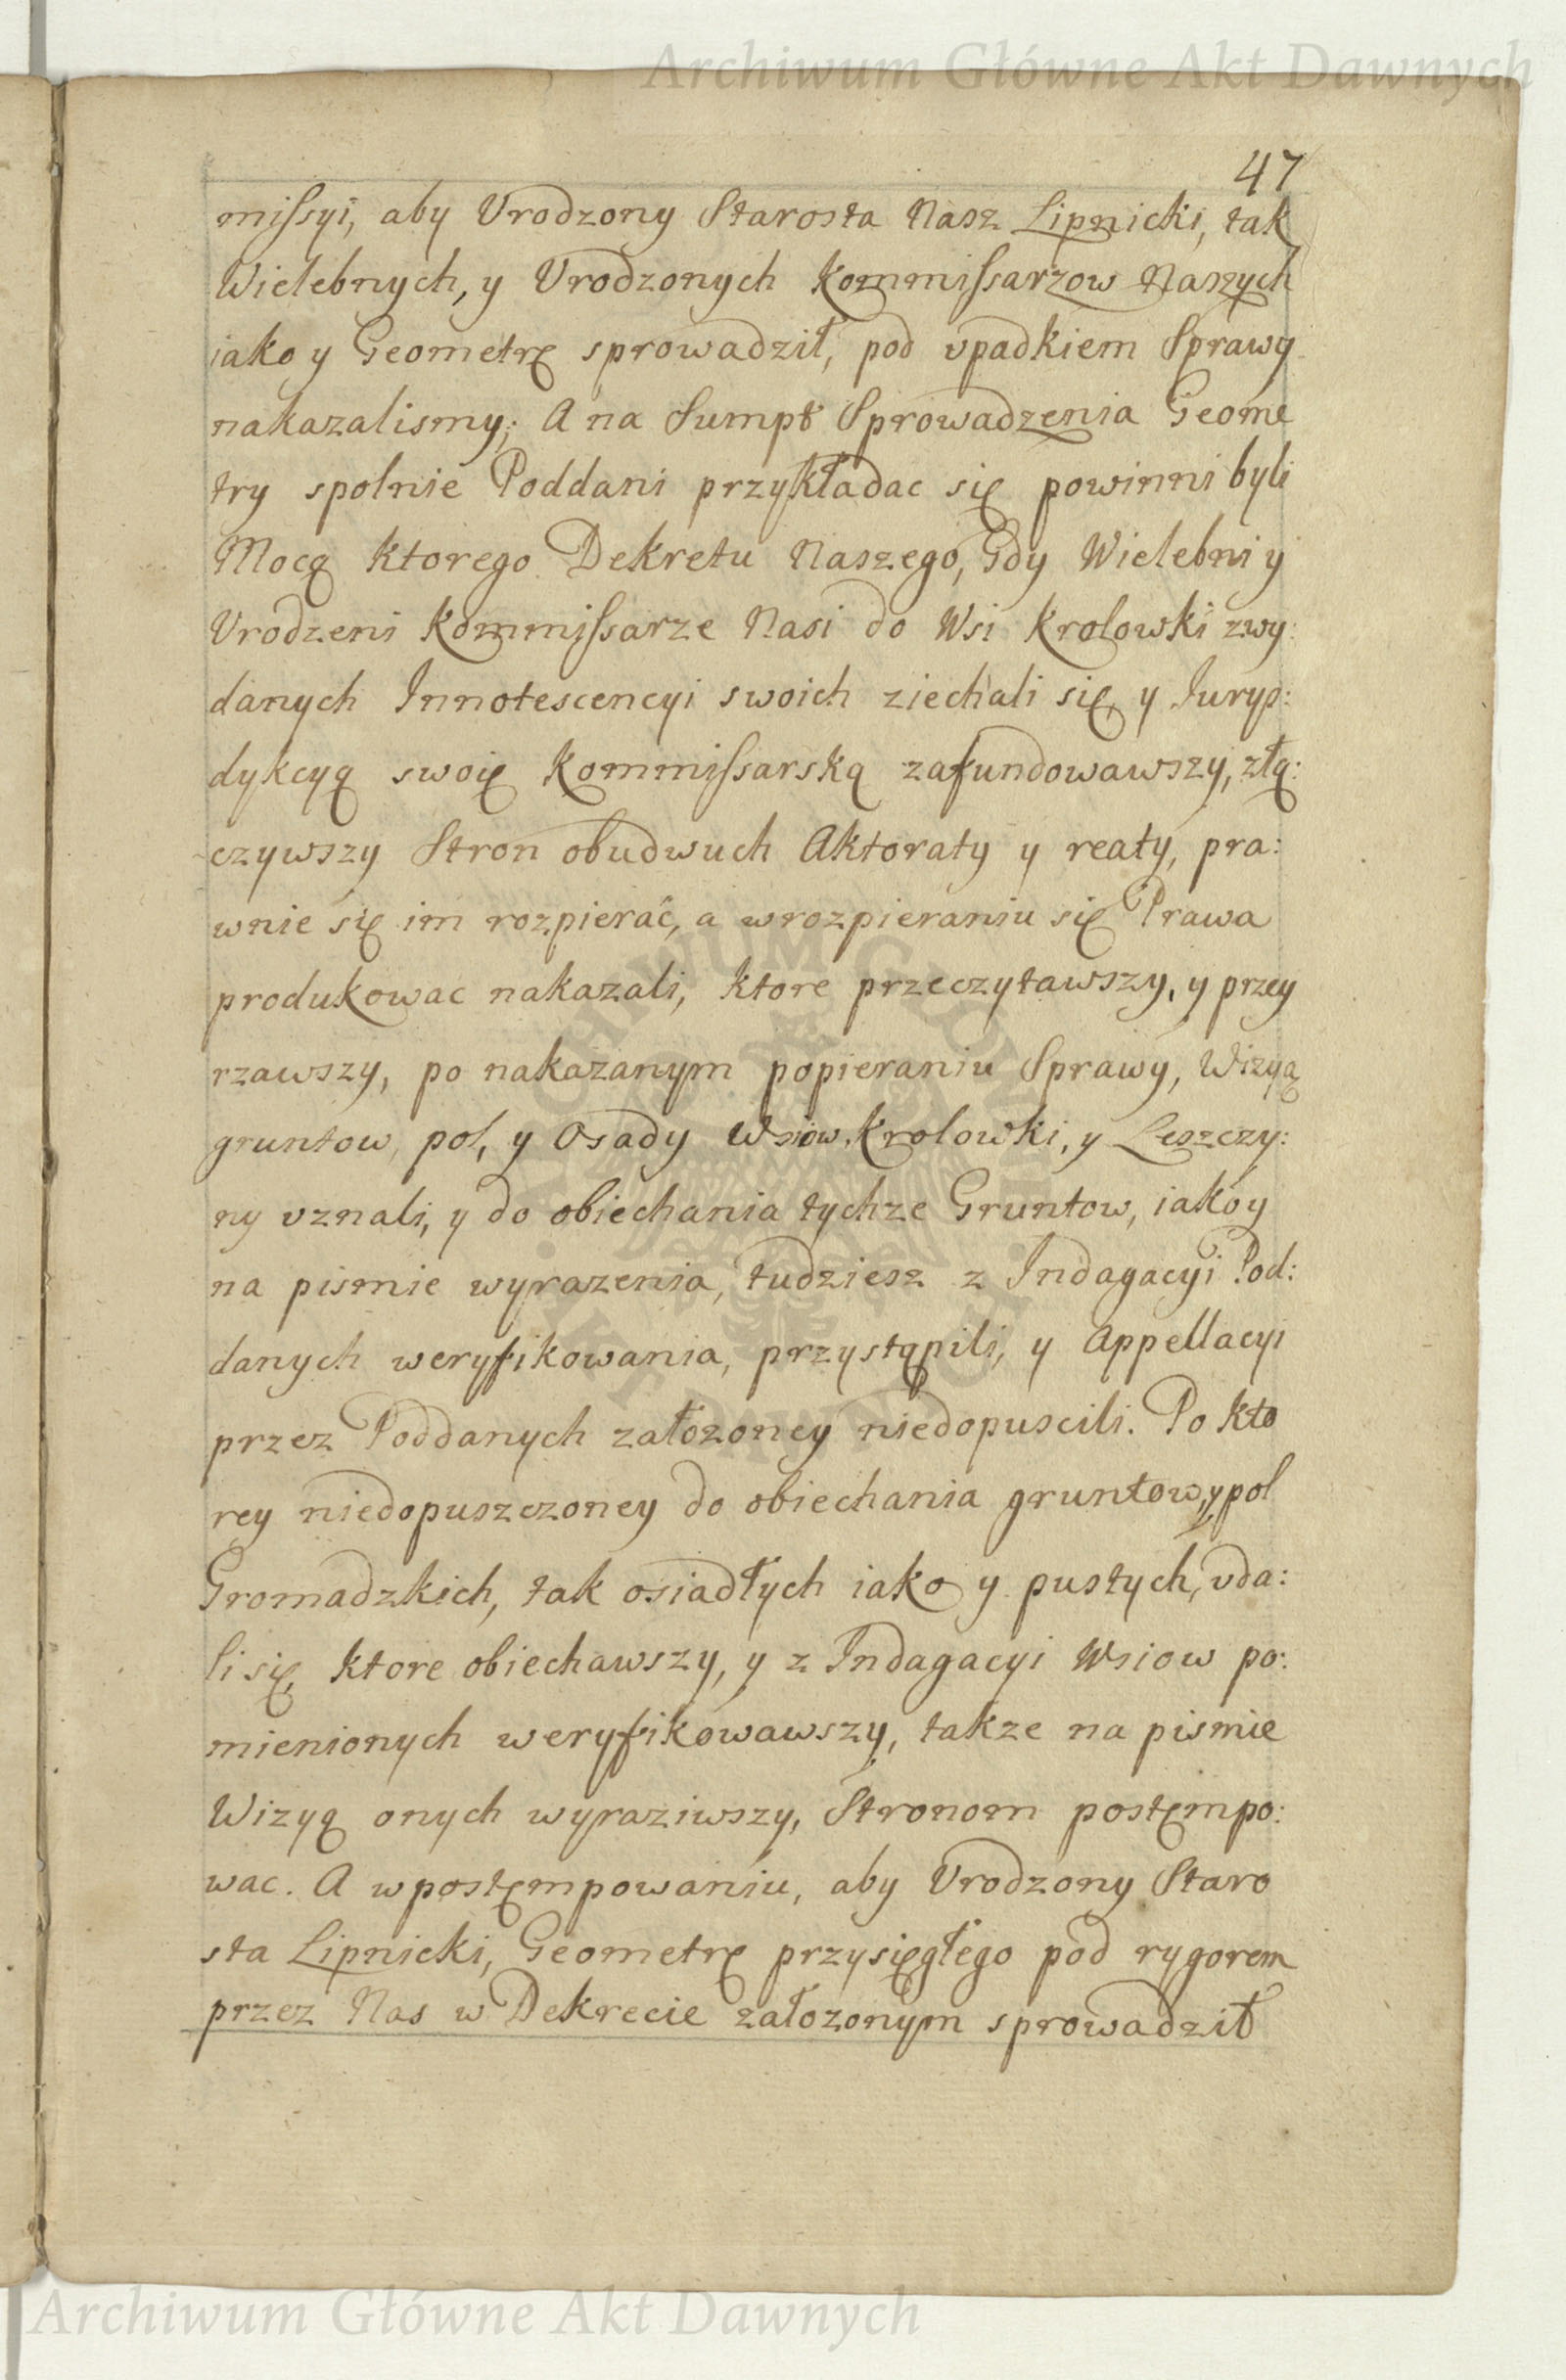 Archiwum Główne Akt Dawnych
47
miſsyi, aby Vrodzony Starosta Nasz Lipnicki, tak
Wielebnych, y Vrodzonych Kommiſsarzow Naszych
iako y Geometrę sprowadził, pod vpadkiem Sprawy
nakazalismy; A na Sumpt Sprowadzenia Geome
try spolnie Poddani przykładac się powinni byli
Mocą ktorego Dekretu Naszego, Gdy Wielebni y
Vrodzeni Kommiſsarze Nasi do Wsi Krolowki zwy:
danych Innotescencyi swoich ziechali się, y Juryz:
dykcyą swoię Kommiſsarską zafundowawszy, złą:
czywszy Stron obudwuch Aktoraty y reaty, pra:
wnie się im rozpierać, a wrozpieraniu się Prawa
produkowac nakazali, ktore przeczytawszy, y przey
rzawszy, po nakazanym popieraniu Sprawy, Wizyą
gruntow, pol, y Osady Wsiow, Krolowki, y Leszczy:
ny vznali, y do obiechania tychze Gruntow, iako y
na pismie wyrazenia, tudziesz z Indagacyi Pod:
danych weryfikowania, przystąpili, y Appellacyi
przez Poddanych załozoney niedopuscili. Po kto
rey niedopuszczoney do obiechania gruntow, y pol
Gromadzkich, tak osiadłych iako y pustych, vda:
li się, ktore obiechawszy, y z Indagacyi Wsiow po:
mienionych weryfikowawszy, takze na pismie
Wizyą onych wyraziwszy, Stronom postęmpo:
wac. A w postęmpowaniu, aby Vrodzony Staro
sta Lipnicki, Geometrę przysięgłego pod rygorem
przez Nas w Dekrecie załozonym sprowadził
Archiwum Główne Akt Dawnych